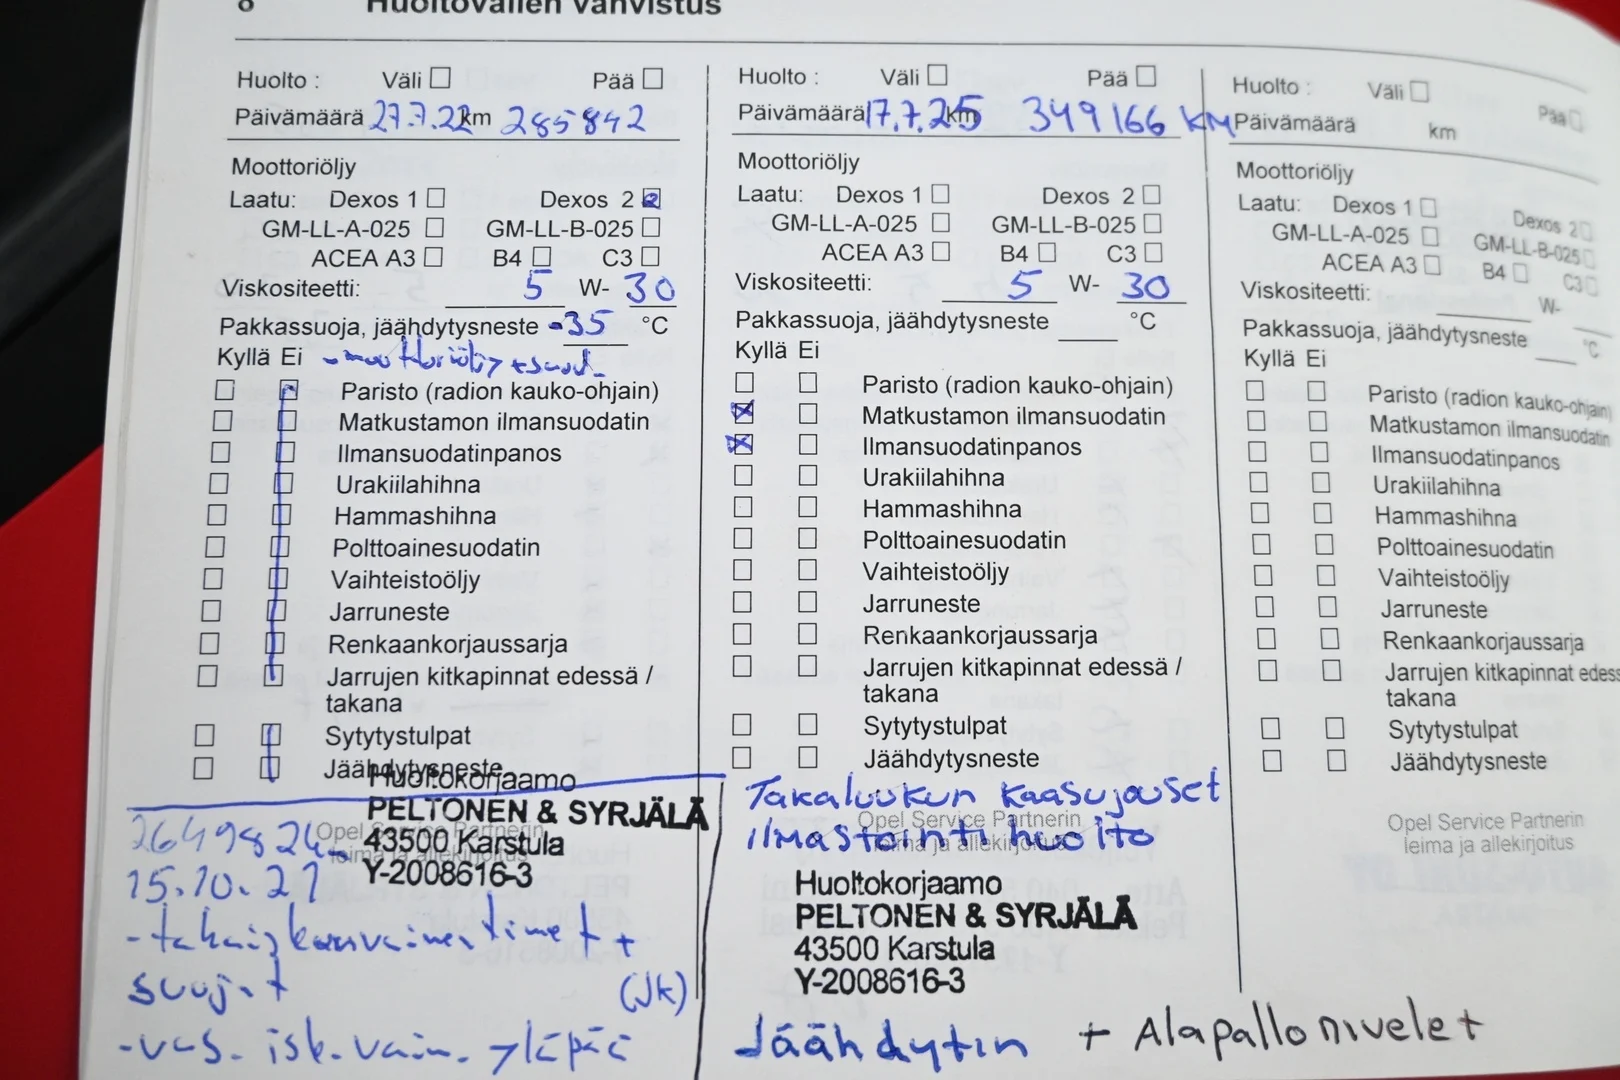 8 Huoltovälien vahvistus
Huolto : Väli Pää
Päivämäärä 27.7.22 km 285842
Moottoriöljy
Laatu: Dexos 1 Dexos 2
GM-LL-A-025 GM-LL-B-025
ACEA A3 B4 C3
Viskositeetti: 5 W- 30
Pakkassuoja, jäähdytysneste -35 °C
Kyllä Ei - moottoriöljy + suod.
Paristo (radion kauko-ohjain)
Matkustamon ilmansuodatin
Ilmansuodatinpanos
Urakiilahihna
Hammashihna
Polttoainesuodatin
Vaihteistoöljy
Jarruneste
Renkaankorjaussarja
Jarrujen kitkapinnat edessä /
takana
Sytytystulpat
Jäähdytysneste
Huoltokorjaamo
PELTONEN & SYRJÄLÄ
Opel Service Partnerin
43500 Karstula
leima ja allekirjoitus
Y-2008616-3
15.10.21
- takaiskunvaimentimet +
suojat
(JK)
- vas. isk. vaim. yläpää
Huolto : Väli Pää
Päivämäärä 17.7.25 km 349166 KM
Moottoriöljy
Laatu: Dexos 1 Dexos 2
GM-LL-A-025 GM-LL-B-025
ACEA A3 B4 C3
Viskositeetti: 5 W- 30
Pakkassuoja, jäähdytysneste °C
Kyllä Ei
Paristo (radion kauko-ohjain)
Matkustamon ilmansuodatin
Ilmansuodatinpanos
Urakiilahihna
Hammashihna
Polttoainesuodatin
Vaihteistoöljy
Jarruneste
Renkaankorjaussarja
Jarrujen kitkapinnat edessä /
takana
Sytytystulpat
Jäähdytysneste
Takaluukun kaasujouset
Opel Service Partnerin
ilmastointi huolto
leima ja allekirjoitus
Huoltokorjaamo
PELTONEN & SYRJÄLÄ
43500 Karstula
Y-2008616-3
Jäähdytin + Alapallonivelet
Huolto : Väli Pää
Päivämäärä km
Moottoriöljy
Laatu: Dexos 1 Dexos 2
GM-LL-A-025 GM-LL-B-025
ACEA A3 B4 C3
Viskositeetti: W-
Pakkassuoja, jäähdytysneste °C
Kyllä Ei
Paristo (radion kauko-ohjain)
Matkustamon ilmansuodatin
Ilmansuodatinpanos
Urakiilahihna
Hammashihna
Polttoainesuodatin
Vaihteistoöljy
Jarruneste
Renkaankorjaussarja
Jarrujen kitkapinnat edess
takana
Sytytystulpat
Jäähdytysneste
Opel Service Partnerin
leima ja allekirjoitus